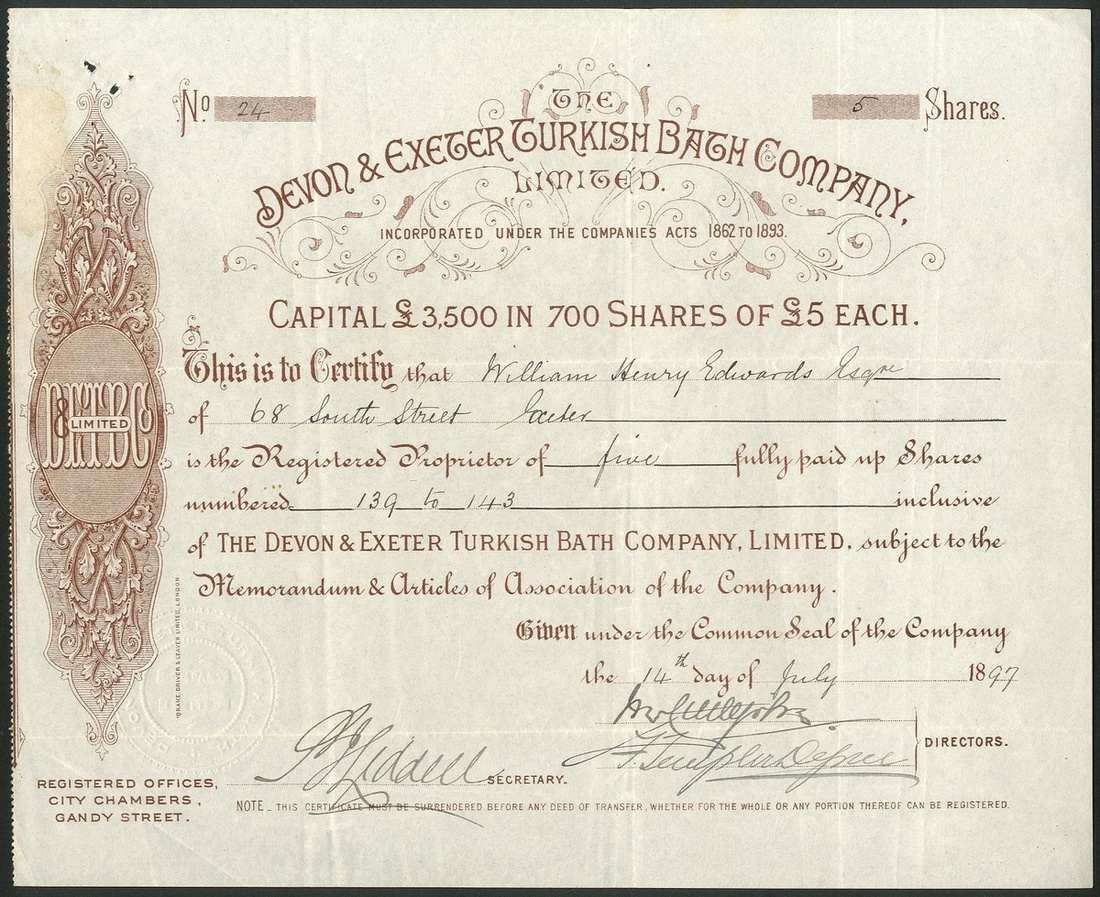 No 24
5 Shares.
THE
DEVON & EXETER TURKISH BATH COMPANY,
LIMITED.
INCORPORATED UNDER THE COMPANIES ACTS 1862 TO 1893.
CAPITAL £3,500 IN 700 SHARES OF £5 EACH.
This is to Certify that William Henry Edwards Esqre
of 68 South Street Exeter
is the Registered Proprietor of five fully paid up Shares
numbered 139 to 143 inclusive
of THE DEVON & EXETER TURKISH BATH COMPANY, LIMITED, subject to the
Memorandum & Articles of Association of the Company.
Given under the Common Seal of the Company
the 14th day of July 1897
LIMITED
DRAKE, DRIVER & LEAVER LIMITED, LONDON
DIRECTORS.
Liddell SECRETARY.
REGISTERED OFFICES,
CITY CHAMBERS,
GANDY STREET.
NOTE - THIS CERTIFICATE MUST BE SURRENDERED BEFORE ANY DEED OF TRANSFER, WHETHER FOR THE WHOLE OR ANY PORTION THEREOF CAN BE REGISTERED.